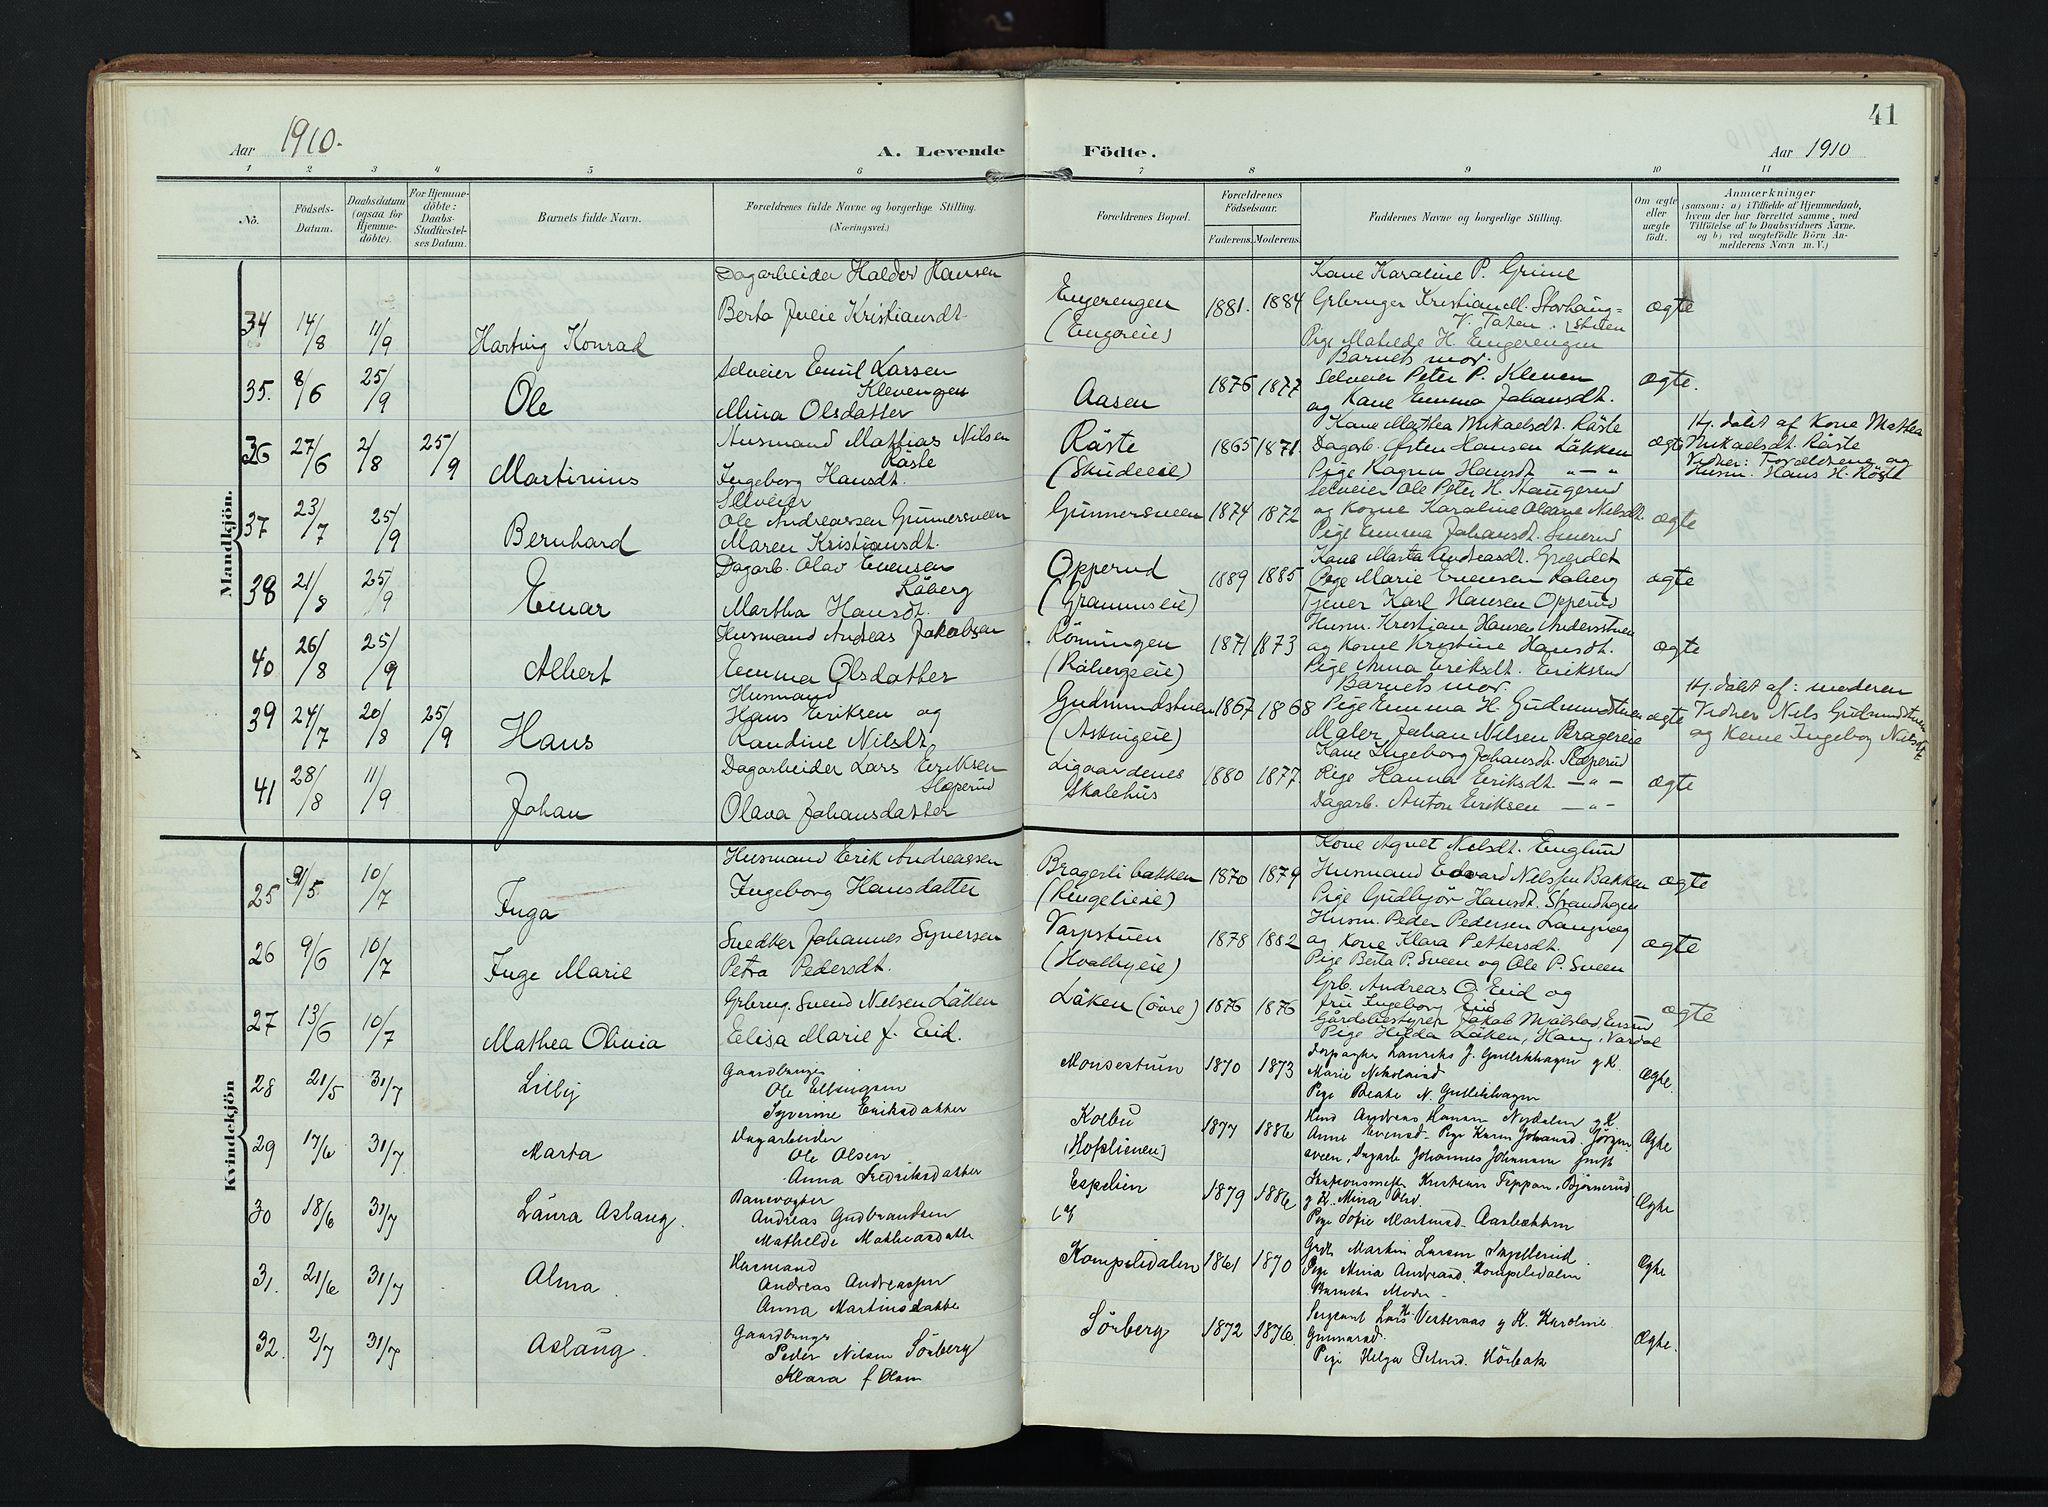 41
Aar 1910.
A. Levende Födte.
Aar 1910
1 2 3 4 5 6 7 8 9 10 11
No.
Födsels-Datum.
Daabsdatum (ogsaa for Hjemmedöbte).
For Hjemmedöbte: Daabs-Stadfæstelses Datum.
Barnets fulde Navn.
Forældrenes fulde Navne og borgerlige Stilling. (Næringsvei.)
Forældrenes Bopæl.
Forældrenes Födselsaar.
Faderens. Moderens.
Faddernes Navne og borgerlige Stilling.
Om ægte eller uægte født.
Anmærkninger
(saasom: a) i Tilfælde af Hjemmedaab, hvem der har forrettet samme, med Tilföielse af to Daabsvidners Navne. og b) ved uægtefödte Börn Anmelderens Navn m. V.)
Mandkjön.
34 14/8 11/9 Hartvig Konrad
Dagarbeider Haldor Hansen
Berto Julie Kristiansdt.
Engerengen
(Engereie)
1881. 1884
Kone Karaline P. Grime
Grbruger Kristian M. Storhaug-
V. Toten.
Pige Matilde H. Engerengen
ægte
35. 8/6 25/9 Ole
Selveier Emil Larsen
Klevengen
Mina Olsdatter
Aasen
1876 1877
Barnets mor.
Selveier Peter P. Kleven
og Kone Emma Johansdt.
ægte.
36 27/6 2/8 25/9 Martinius
Husmand Mattias Nilsen
Räste
Ingeborg Hansdt.
Räste
(Skudeeie)
1865 1871.
Kone Mathea Mikaelsdt. Räste
Dagarb. Østen Hansen Läkken
Pige Ragna Hansdt. — " —
ægte
Hj. döbt af Kone Mathea
Mikaelsdt. Räste
Vidner: Forældrene og
Husm. Hans H. Röste
37 23/7 25/9 Bernhard
Selveier
Ole Andreassen Gunnersveen
Maren Kristiansdt.
Gunnersveen
1874 1872
Selveier Ole Peter H. Haugerud
og Kone Karaline Oliane Nilsdt.
Pige Emma Johansdt. Smerud
ægte
38 21/8 25/9 Einar
Dagarb. Olav Evensen
Råberg
Martha Hansdt.
Opperud
(Grammseie)
1889 1885
Kone Marta Andreasdt.
Pige Marie Evensen Råberg
Tjener Karl Hansen Opperud
ægte
40 26/8 25/9 Albert
Husmand Andreas Jakobsen
Emma Olsdatter
Rönningen
(Råbergseie)
1871 1873
Husm. Kristian Hansen Andersstuen
og Kone Kristine Hansdt.
Pige Anna Eriksdt. Eriksrud
ægte
39 24/7 20/8 25/9 Hans
Husmand
Hans Eriksen og
Randine Nilsdt.
Gudmundstuen
(Askvigeie)
1867 1868
Barnets mor.
Pige Emma H. Gudmundstuen
Maler Johan Nilsen Bragereie
ægte
Hj. döbt af: moderen
Vidner Nils Gudmundstuen
og Kone Ingeborg Nilsdt.
41 28/8 11/9 Johan
Dagarbeider Lars Eriksen
Slaperud
Olava Johansdatter
Ligaardenes
Skolehus
1880 1877
Kone Ingeborg Johansdt. Slaperud
Pige Hanna Eriksdt. — " —
Dagarb. Anton Eriksen — " —
ægte
Kvindekjön
25 31/5 10/7 Inga
Husmand Erik Andreassen
Ingeborg Hansdatter
Bragerli bakken
(Ringelieeie)
1870 1879
Kone Agnet Nilsdt. Englund
Husmand Edvard Nilssen Bakken
Pige Gudbjör Hansdt. Strandhagen
ægte
26 9/6 10/7 Inge Marie
Snedker Johannes Syversen
Petra Pedersdt.
Varpstuen
(Hvalbyeie)
1878 1882
Husm. Peder Pedersen Langvæg
og Kone Klara Pettersdt.
Pige Berta P. Sveen og Ole P. Sveen
ægte
27 13/6 10/7 Mathea Olivia
Grbrug. Svend Nilsen Läken
Elisa Marie f. Eid.
Läken (övre)
1876 1876
Grb. Andreas O. Eid og
fru Ingeborg Eid
Gårdsbestyrer Jakob Mjölstad,
Pige Hilda Läken, Haug, Vardal
ægte
28 21/5 31/7 Lilly
Gaardbruger
Ole Ellingsen
Syverine Eriksdatter
Monsestuen
1870 1873
J. Gullikhagen g K.
Marie Nikolaisd.
Pige Beate N. Gullikhagen
Ægte.
29 17/6 31/7 Marta
Dagarbeider
Ole Olsen
Anna Fredriksdatter
Kolbu
(Hofslienen)
1877 1886
Andreas Hansen Nordalen g K.
Anne Evensd. Pige Karen Johansd. Jörgen-
sveen, Dagarb Johannes Johansen
Ægte
30 18/6 31/7 Laura Aslaug.
Banevogter
Andreas Gudbrandsen
Mathilde Mathiasdatter
Espelien
1879 1886
Stationsmester Kristian Teppen, Björnerud
g K. Mina Olsd.
Pige Sofie Martinsd. Aasbakken
Ægte
31. 21/6 31/7 Alma.
Husmand
Andreas Andreassen
Anna Martinsdatter
Kompelidalen
1861 1870
Martin Larsen
Pige Mina Andread. Kompelidalen
Barnets Moder -
Ægte
32. 2/7 31/7 Aslaug.
Gaardbruger
Peder Nilsen Sörberg
Klara f Olsen
Sörberg
1872 1876.
Sergeant Lars H. Vesteraas g K. Karoline
Gunnarsd.
Pige Helga Pedersd. Hörbak
Ægte.